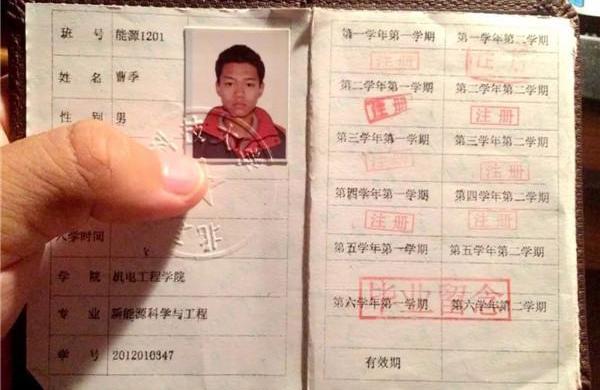 班 号 能源1201
姓 名 曹季
性 别 男
入学时间
学 院 机电工程学院
专 业 新能源科学与工程
学 号 2012010347
第一学年第一学期 第一学年第二学期
注册 注册
第二学年第一学期 第二学年第二学期
注册 注册
第三学年第一学期 第三学年第二学期
注册 注册
第四学年第一学期 第四学年第二学期
注册 注册
第五学年第一学期 第五学年第二学期
毕业留念
第六学年第一学期 第六学年第二学期
有效期